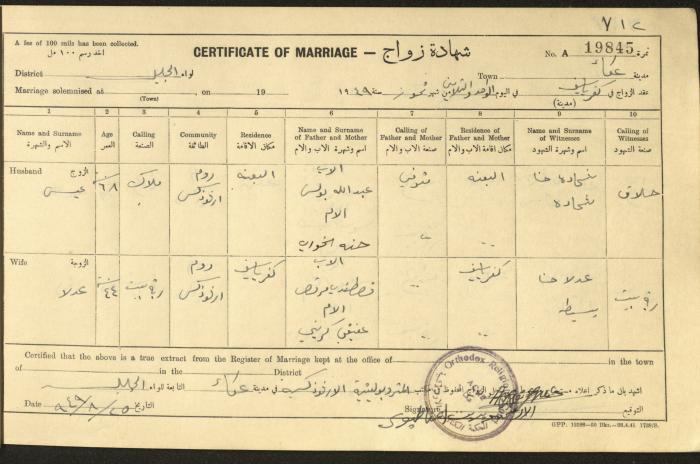 ٧١٢
A fee of 100 mils has been collected.
الرسم ١٠٠ مل
CERTIFICATE OF MARRIAGE — شهادة زواج
No. A 19845 نمرة
District الجليل لواء
Town عكا مدينة
Marriage solemnised at , on 19
(Town)
عقد الزواج في كفرياسيف في اليوم الواحد والثلاثين شهر تموز سنة ١٩٤٩
(مدينة)
1 2 3 4 5 6 7 8 9 10
Name and Surname الاسم والشهرة
Age العمر
Calling الصنعة
Community الطائفة
Residence مكان الاقامة
Name and Surname of Father and Mother اسم وشهرة الاب والام
Calling of Father and Mother صنعة الاب والام
Residence of Father and Mother مكان اقامة الاب والام
Name and Surname of Witnesses اسم وشهرة الشهود
Calling of Witnesses صنعة الشهود
Husband الزوج
عيسى
٦٨ سنة
ملاك
روم ارثوذكس
البعنه
الاب
عبدالله بولس
الام
حنه الخوري
متوفي
البعنه
شحاده حنا شحاده
حلاق
Wife الزوجة
عدلا
٤٤ سنة
ربة بيت
روم ارثوذكس
كفرياسيف
الاب
الام
كفرياسيف
عدلا حنا
ربة بيت
Certified that the above is a true extract from the Register of Marriage kept at the office of in the town
of in the District
اشهد بان ما ذكر اعلاه الزواج المحفوظ في مكتب المتروبوليتية الارثوذكسية في مدينة عكا التابعة للواء الجليل
Orthodox Religious
Date ٢٥/٨/٩٤٩ التاريخ
Signature التوقيع